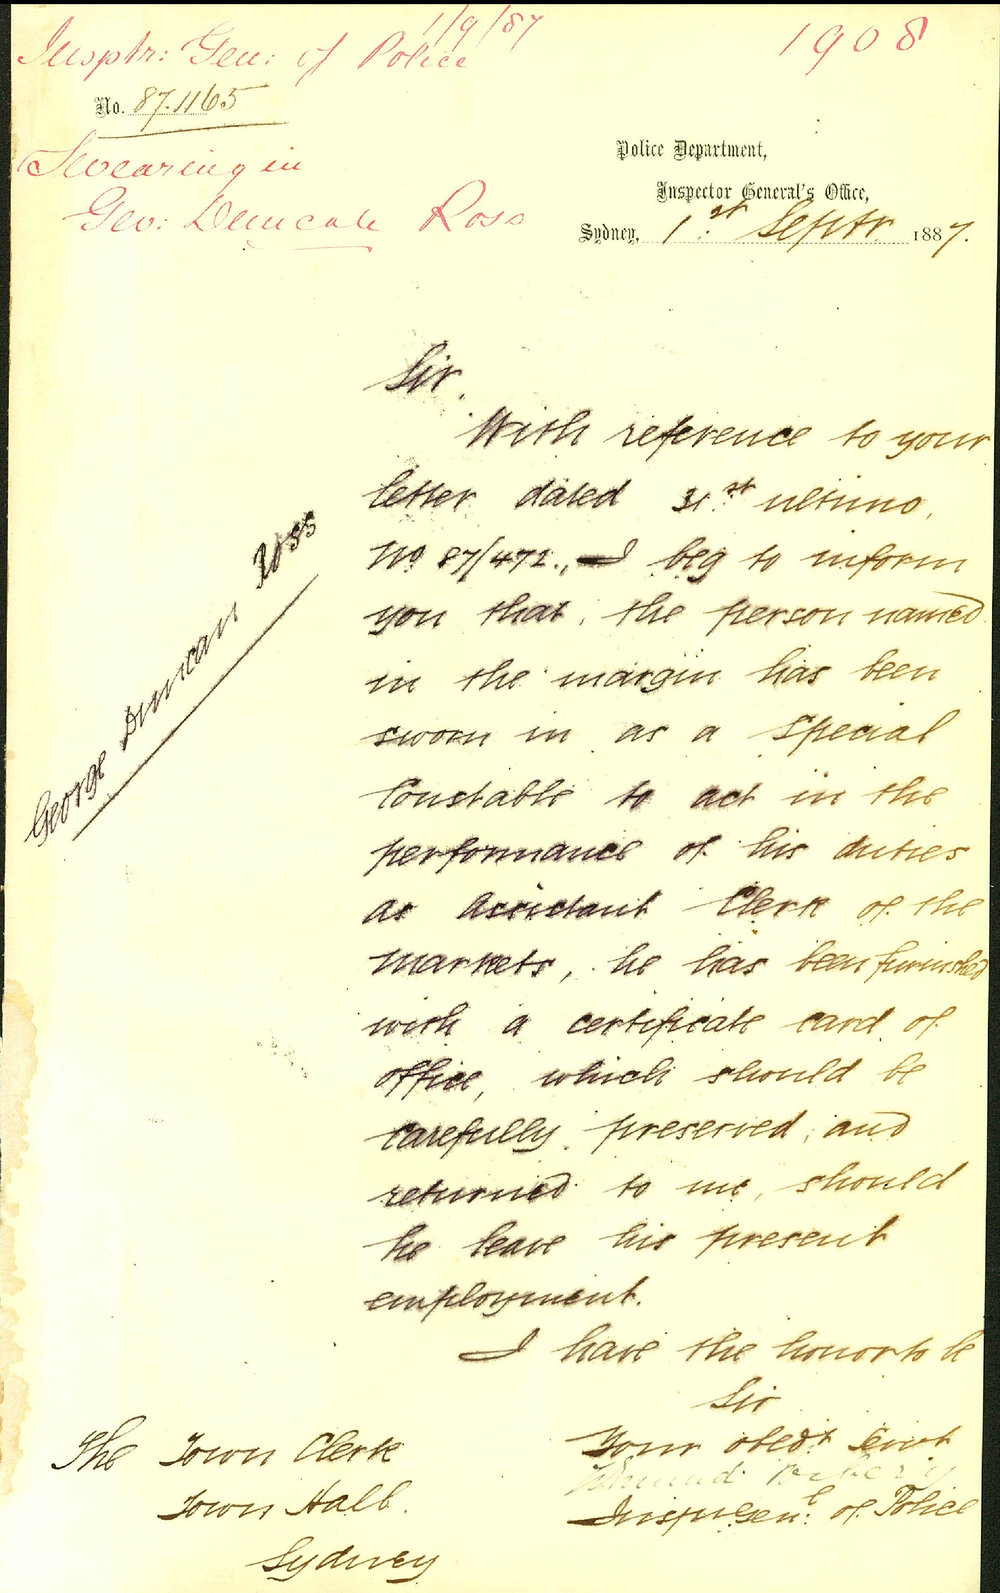 1/9/87
1908
Insptr: Gen: of Police
No. 87.1165
Swearing in
Geo: Duncan Ross
Police Department,
Inspector General's Office,
Sydney, 1st Septr. 1887.
Sir,
With reference to your
letter dated 31st ultimo,
No 87/472., I beg to inform
you that, the person named
in the margin has been
sworn in as a Special
Constable to act in the
performance of his duties
as Assistant Clerk of the
Markets, he has been furnished
with a certificate card of
office, which should be
carefully preserved, and
returned to me, should
he leave his present
employment.
George Duncan Ross
I have the honor to be
Sir
Your obedt Servt
Edmund Fosbery
Insp Genl: of Police
The Town Clerk
Town Hall.
Sydney